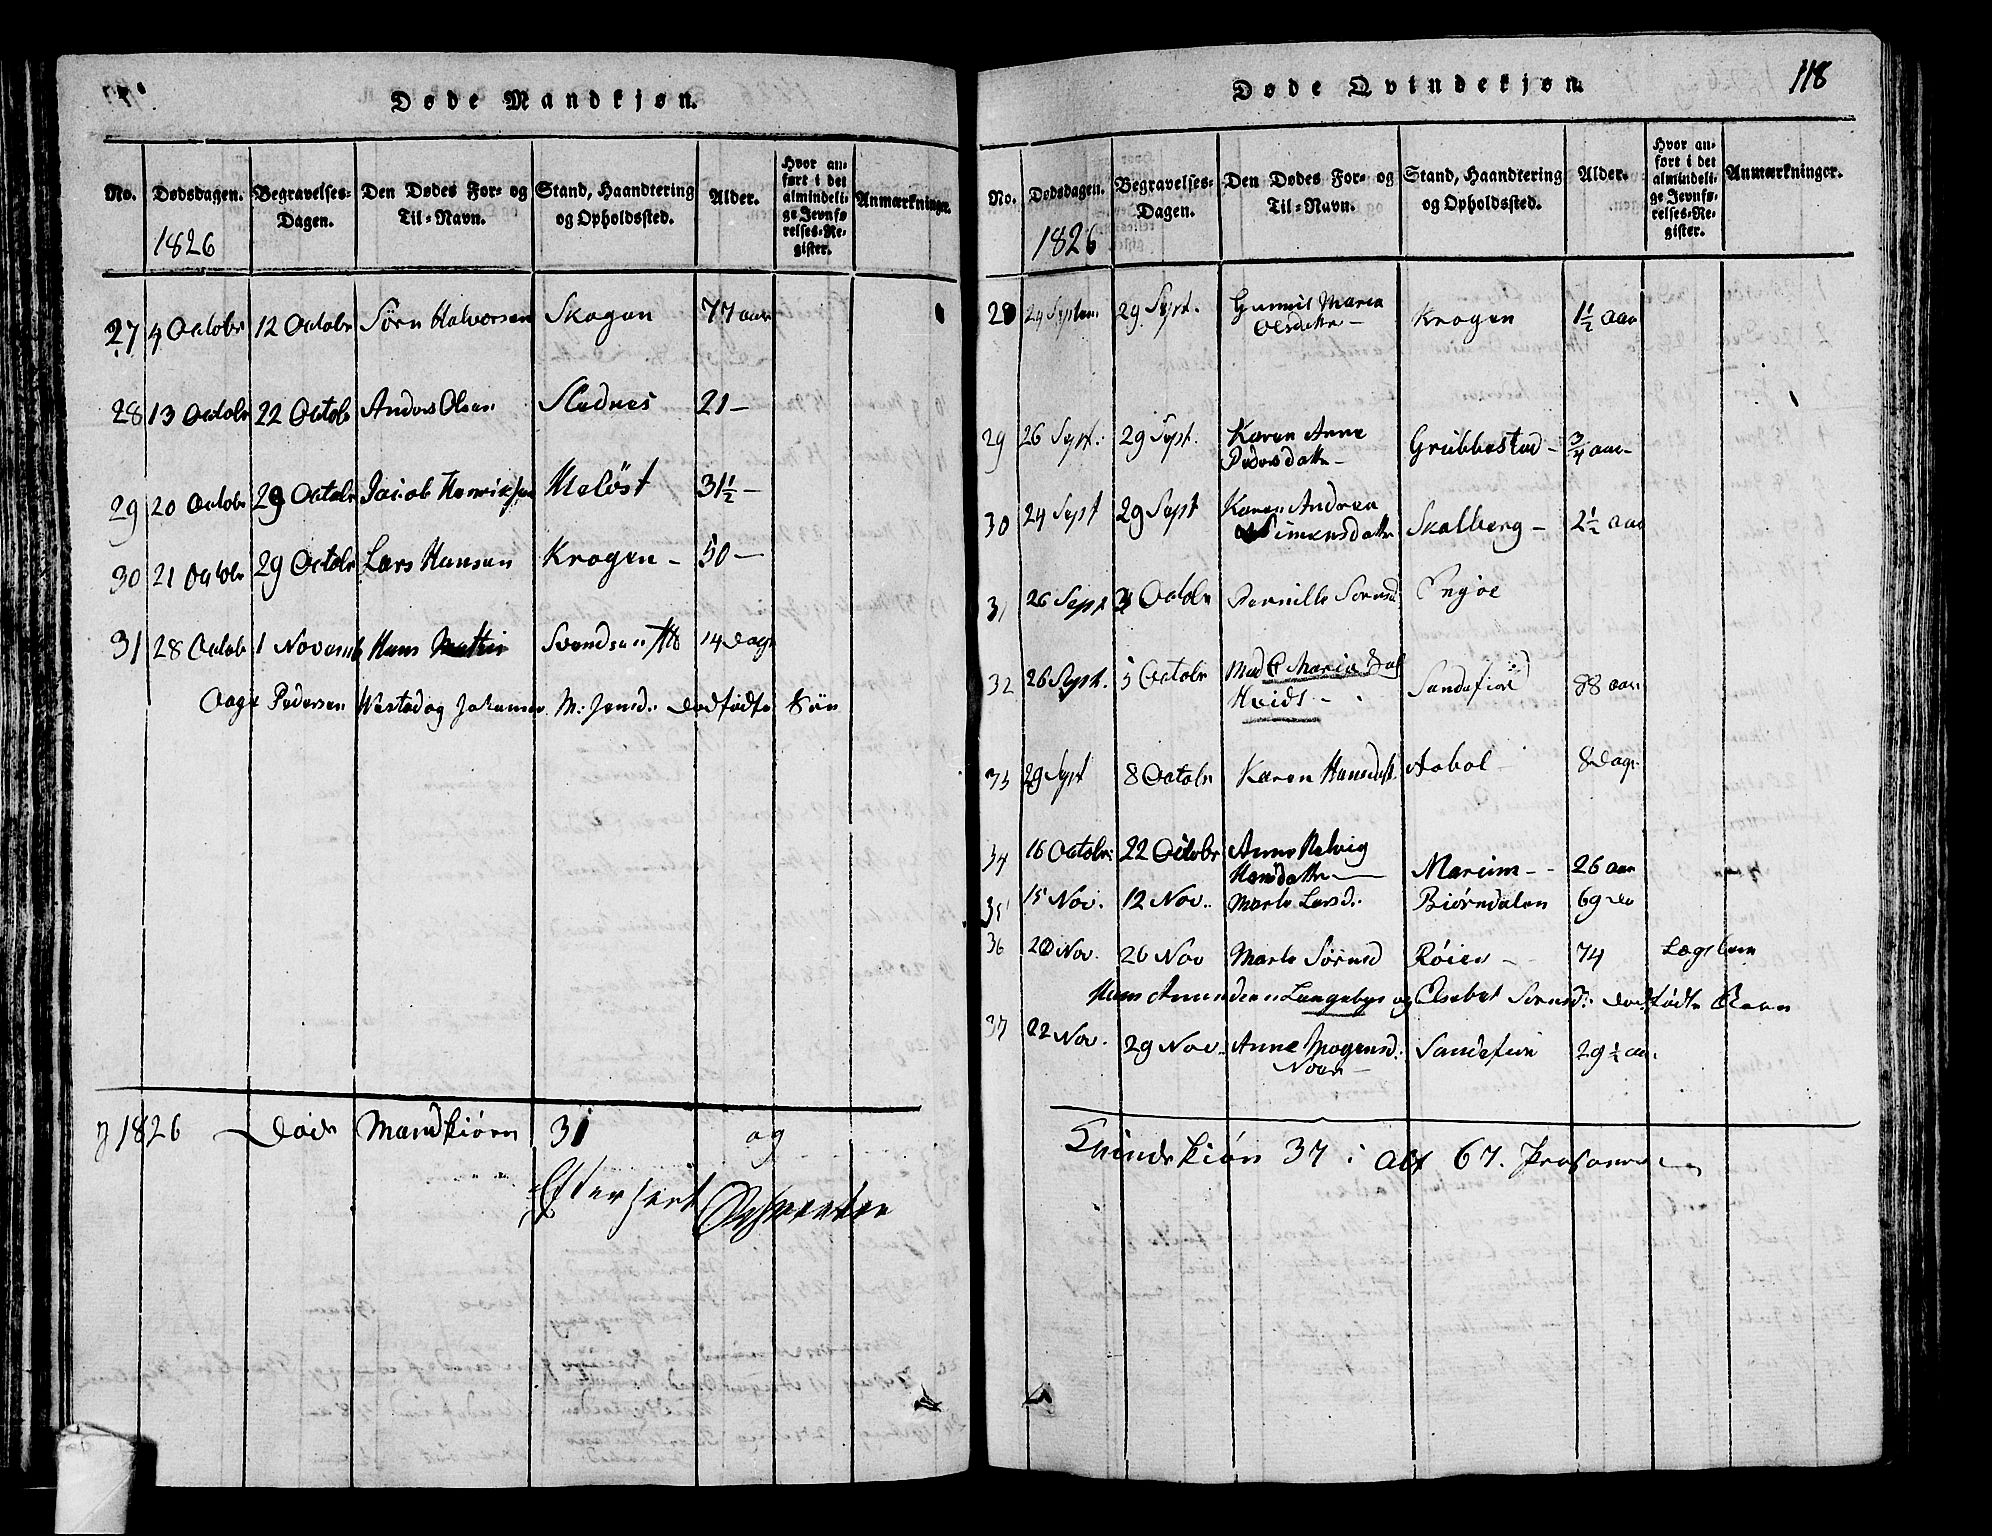 Døde Mandkjøn.
No. Dødsdagen. Begravelses-Dagen. Den Dødes For- og Til-Navn. Stand, Haandtering og Opholdssted. Alder. Hvor anført i det almindelige Jevnførelses-Register. Anmærkninger.
1826
27 4 Octobr 12 Octobr Sørn Halvorsen Skogen 77 aar
28 13 Octobr 22 Octobr Anders Olsen 21 –
29 20 Octobr 29 Octobr Jacob Henriksen 31½ –
30 21 Octobr 29 Octobr Lars Hansen Krogen – 50 –
31 28 Octob 1 Novemb Hans Svendsen 14 Dage
Aage Pedersen og Johanne M. Jensd. Dødfødte Søn
1826 Døde Mandkiøn 31 og
Efterseet
Døde Qvindekjøn.
118
No. Dødsdagen. Begravelses-Dagen. Den Dødes For- og Til-Navn. Stand, Haandtering og Opholdssted. Alder. Hvor anført i det almindelige Jevnførelses-Register. Anmærkninger.
1826
28 24 Septem 29 Sept. Gunnil Maria Krogen 1½ aar
Olsdattr –
29 26 Sept. 29 Sept. Karen Anne Grubbestad – ¾ aar
Pedersdattr –
30 24 Sept 29 Sept Karen Andrea Skalberg – 2½ aar
Simensdattr
31 26 Sept 3 Octobr Pernille Sørnsd
32 26 Sept. 5 Octobr Mad Maria Sandefior 88 aar
Hvids –
33 29 Sept 8 Octobr Karen Hansdat. 8 Dage
34 16 Octobr 22 Octobr Anne Helvig 26 aar
Hansdattr –
35 15 Nov. 12 Nov. Marte Larsd. Biørndalen 69 do
36 20 Nov. 26 Nov Marte Sørnsd Røien – 74 Lægslem
Hans Amundsen Langebye og Elsebet Sørnsd. Dødfødte Barn
37 22 Nov. 29 Nov. Anne Mogensd. Sandefior 29½ aar
Qvindekiøn 37 i alt 67. Personer